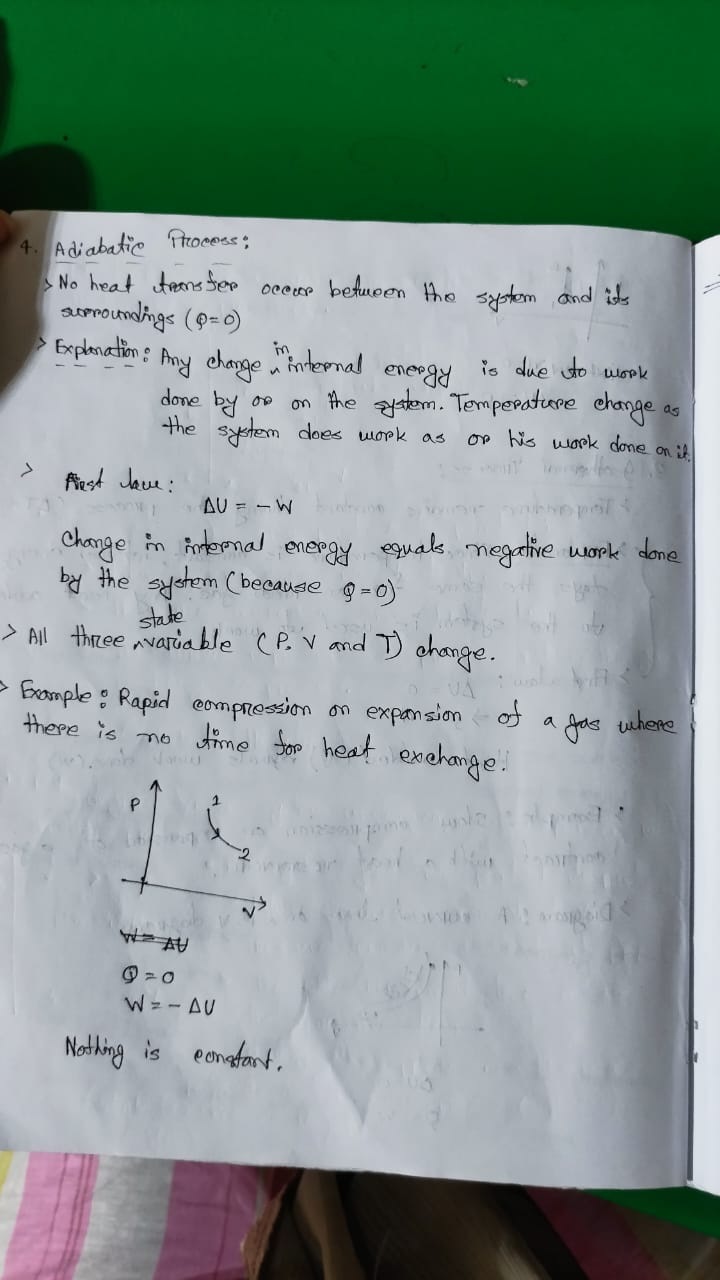 4. Adiabatic Process:
> No heat transfer occur between the system and its
surroundings (Q=0)
> Explanation: Any change in internal energy is due to work
done by or on the system. Temperature change as
the system does work as or his work done on it.
> First law:
ΔU = - W
Change in internal energy equals negative work done
by the system (because Q=0)
> All three state variable (P, V and T) change.
> Example: Rapid compression on expansion of a gas where
there is no time for heat exchange.
P
1
2
V
W = ΔU
Q = 0
W = - ΔU
Nothing is constant.